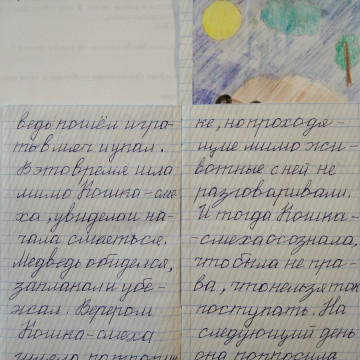 ведь пошёл игра-
ть в мяч и упал.
В это время шла
мимо Кошка-сме-
ха, увидела и на-
чала смеяться.
Медведь обиделся,
заплакал и убе-
жал. Вечером
Кошка-смеха
ке, но проходя-
щие мимо жи-
вотные с ней не
разговаривали.
И тогда Кошка-
-смеха осознала,
что была не пра-
ва, что нельзя так
поступать. На
следующий день
она попросила